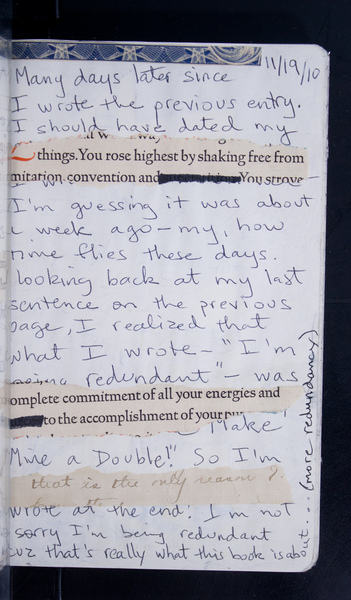 11/19/10
Many days later since
I wrote the previous entry.
I should have dated my
things. You rose highest by shaking free from
mitation, convention and You strove
I'm guessing it was about
a week ago - my, how
time flies these days.
looking back at my last
sentence on the previous
page, I realized that
what I wrote - "I'm
being redundant" - was
omplete commitment of all your energies and
to the accomplishment of your
Make
Mine a Double!" So I'm
that is the only reason I
wrote at the end! I'm not
sorry I'm being redundant
cuz that's really what this book is about...
(more redundancy)